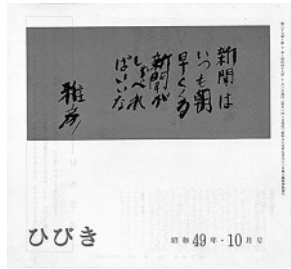 新聞は
いつも朝
早くくる
新聞が
しゃべれ
ばいいな
雅彦
ひびき
昭和49年・10月号